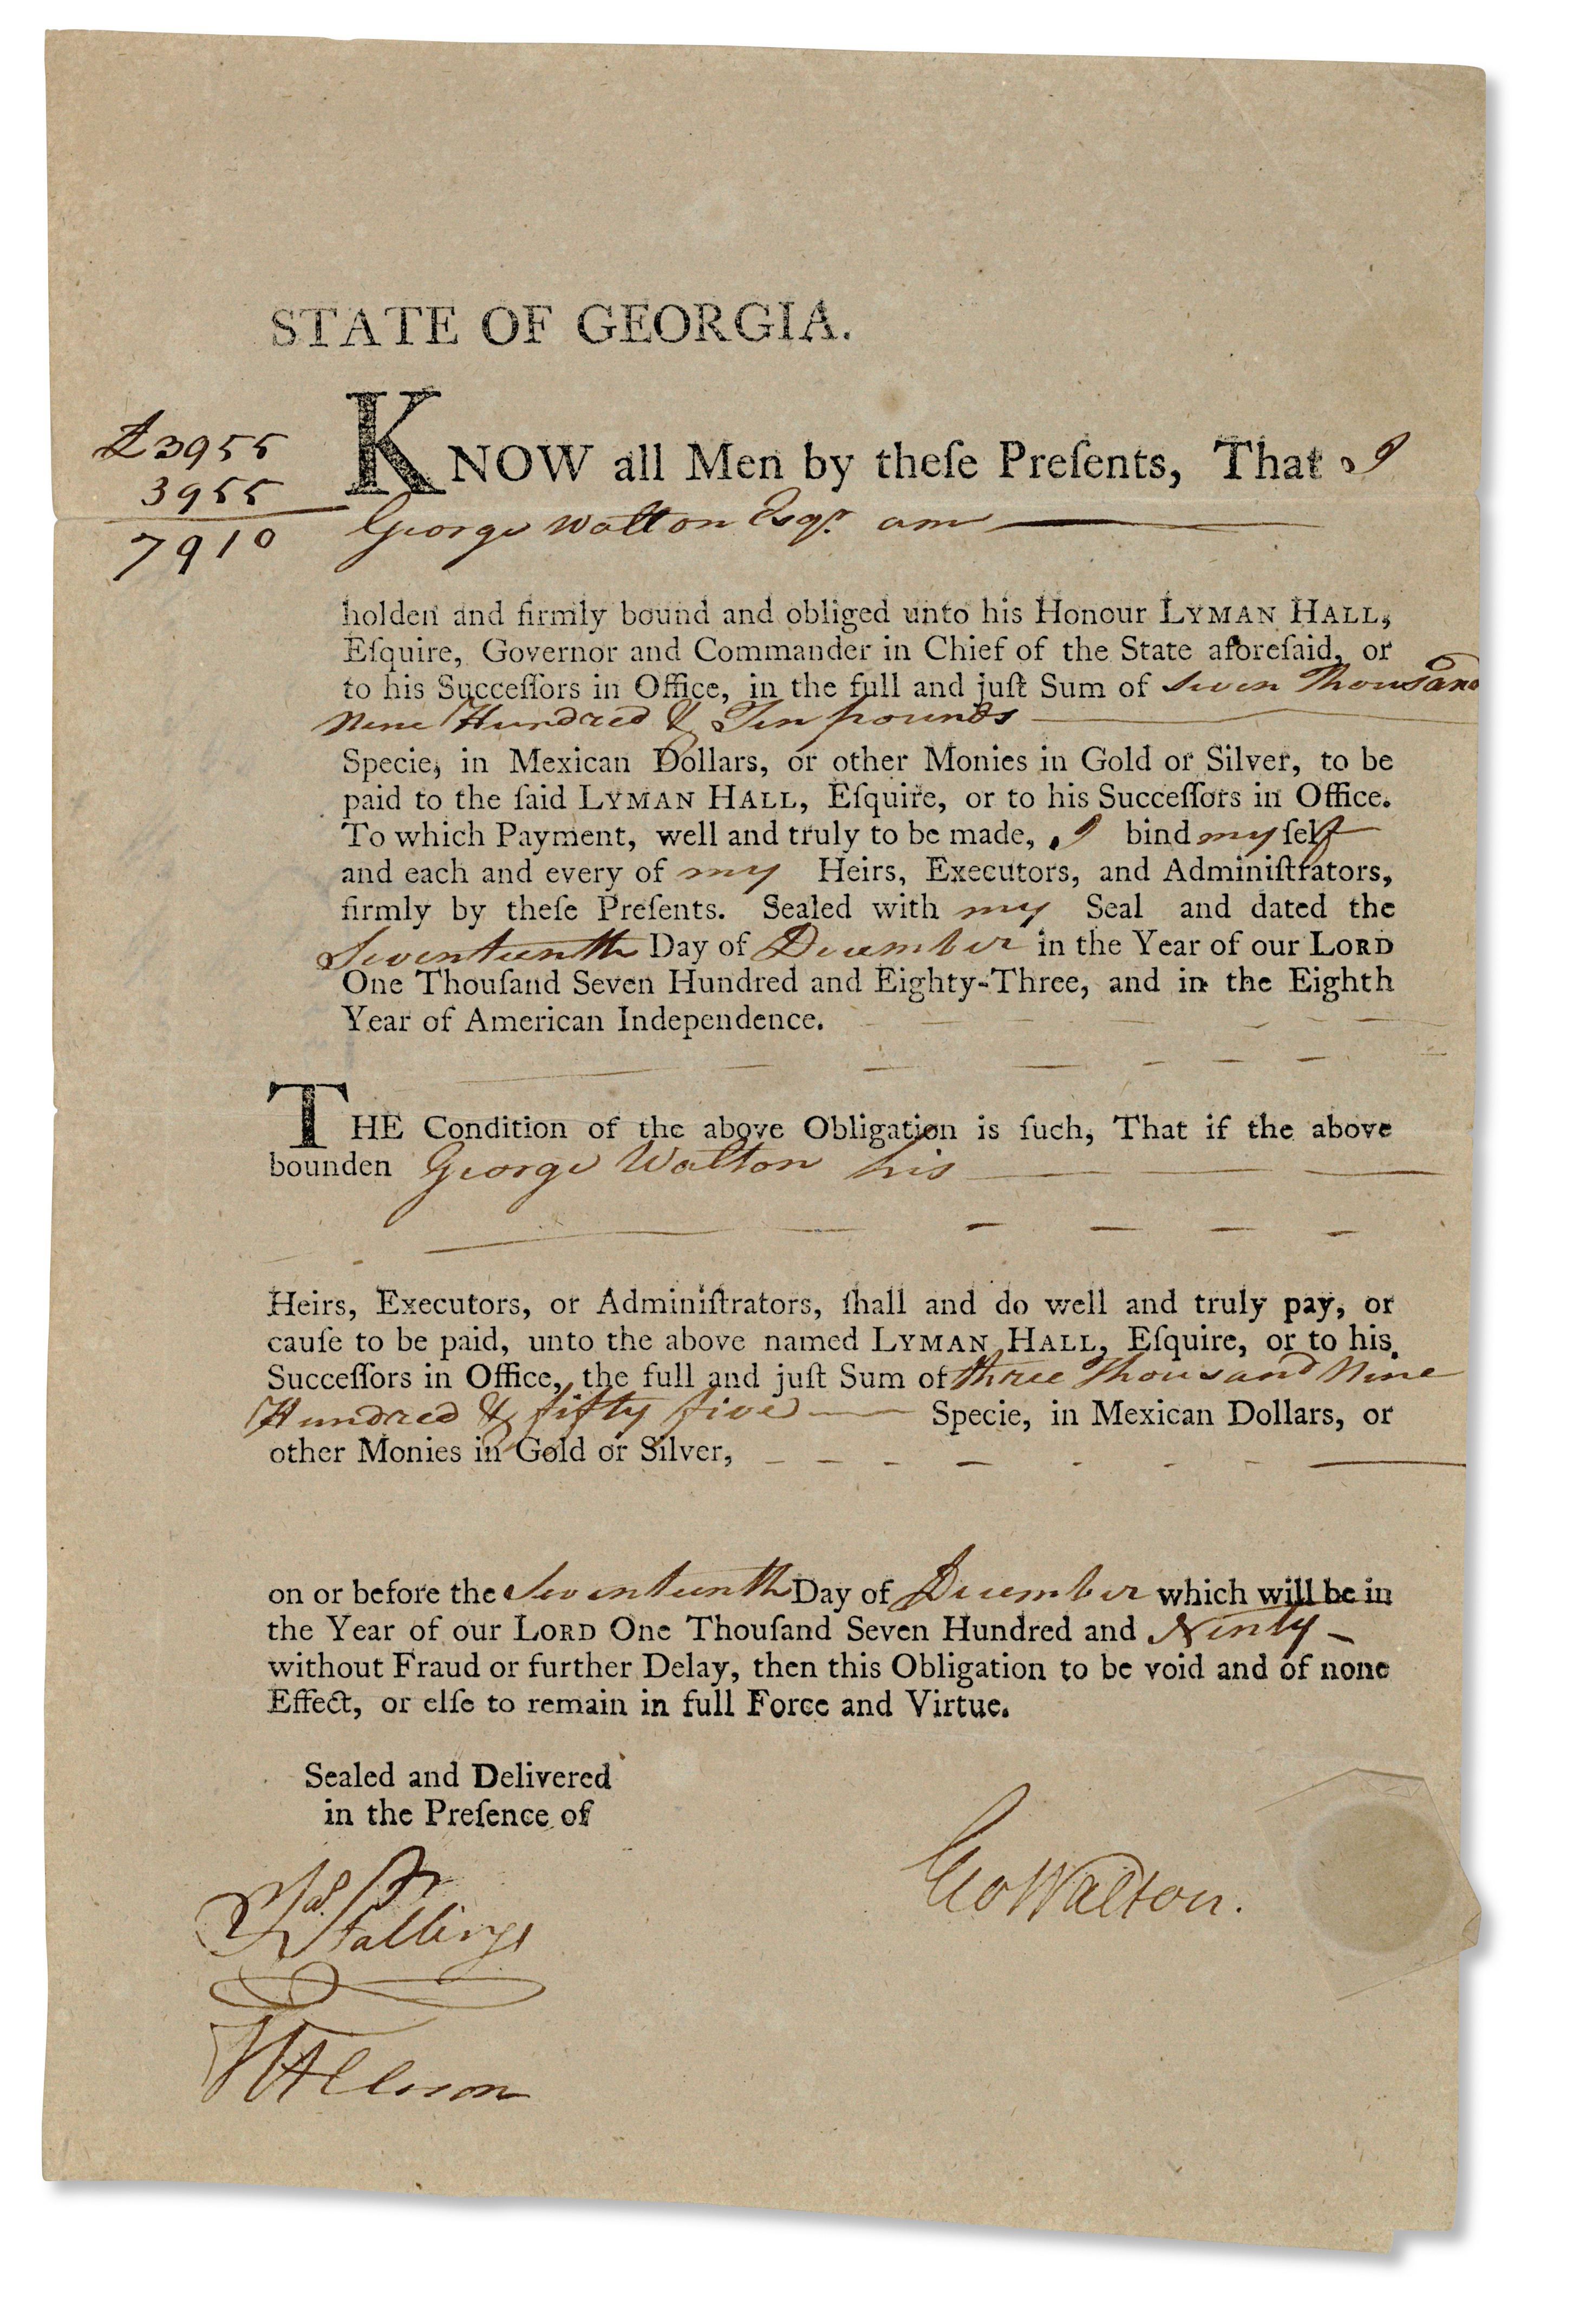 STATE OF GEORGIA.
£3955
3955
7910
KNOW all Men by theſe Preſents, That I
George Walton Esqr. am
holden and firmly bound and obliged unto his Honour LYMAN HALL,
Eſquire, Governor and Commander in Chief of the State aforeſaid, or
to his Succeſſors in Office, in the full and juſt Sum of Seven Thousand
Nine Hundred & Ten pounds
Specie, in Mexican Dollars, or other Monies in Gold or Silver, to be
paid to the ſaid LYMAN HALL, Eſquire, or to his Succeſſors in Office.
To which Payment, well and truly to be made, I bind my ſelf
and each and every of my Heirs, Executors, and Adminiſtrators,
firmly by theſe Preſents. Sealed with my Seal and dated the
Seventeenth Day of December in the Year of our LORD
One Thouſand Seven Hundred and Eighty-Three, and in the Eighth
Year of American Independence.
THE Condition of the above Obligation is ſuch, That if the above
bounden George Walton his
Heirs, Executors, or Adminiſtrators, ſhall and do well and truly pay, or
cauſe to be paid, unto the above named LYMAN HALL, Eſquire, or to his
Succeſſors in Office, the full and juſt Sum of three Thousand Nine
Hundred & fifty five Specie, in Mexican Dollars, or
other Monies in Gold or Silver,
on or before the Seventeenth Day of December which will be in
the Year of our LORD One Thouſand Seven Hundred and Ninty
without Fraud or further Delay, then this Obligation to be void and of none
Effect, or elſe to remain in full Force and Virtue.
Sealed and Delivered
in the Preſence of
Geo Walton.
Stallings